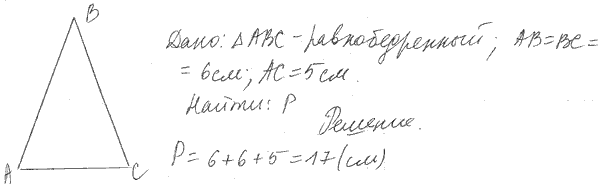 B
Дано: △ABC - равнобедренный; AB=BC=
= 6см; AC=5см.
Найти: P
Решение.
A C P = 6+6+5=17(см)